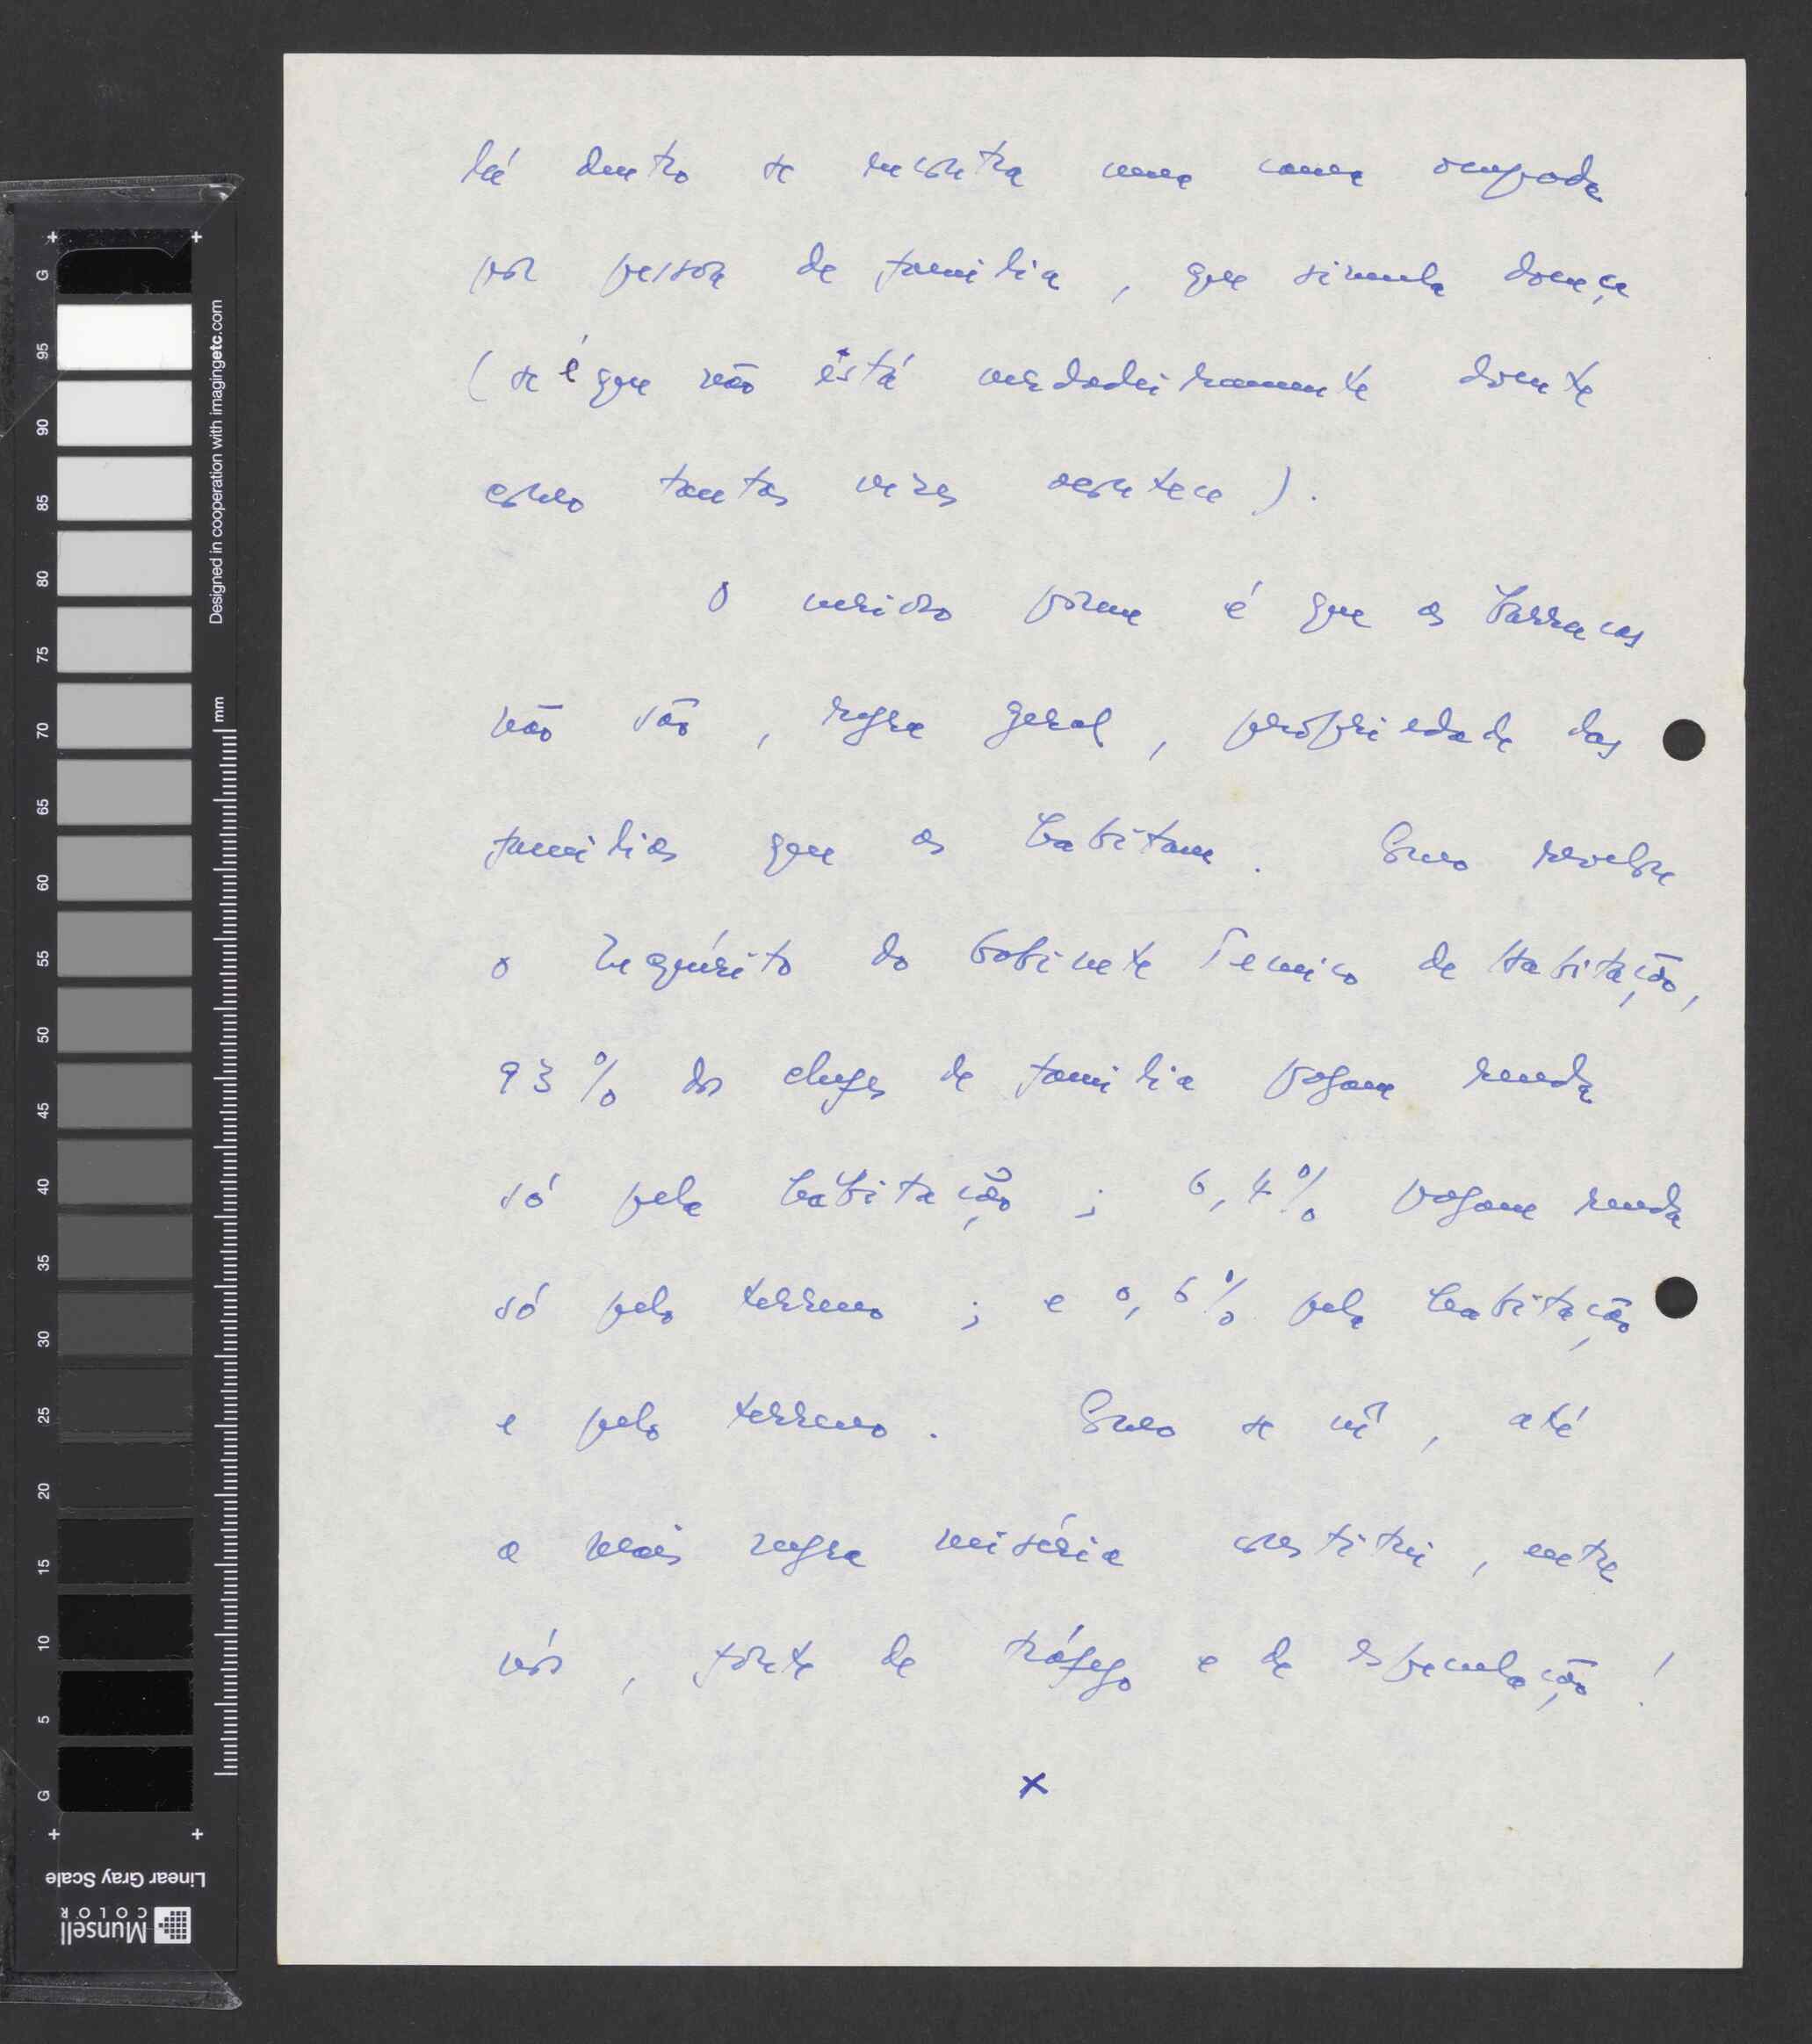 lá dentro se encontra uma cama ocupada
por pessoa de familia, que simula doença
(se é que não está verdadeiramente doente
como tantas vezes acontece).
O curioso porem é que as barracas
não são, regra geral, propriedade das
familias que as habitam. Como revelou
o Inquérito do Gabinete Tecnico de Habitação,
93% dos chefes de familia pagam renda
só pela habitação; 6,4% pagam renda
só pelo terreno; e 0,6% pela habitação
e pelo terreno. Como se vê, até
a mais negra miséria constitui, entre
nós, fonte de tráfego e de especulação!
x
G
95
90
85
80
75
70
65
60
55
50
45
40
35
30
25
20
15
10
5
G
mm
Designed in cooperation with imagingetc.com
Linear Gray Scale
Munsell
COLOR